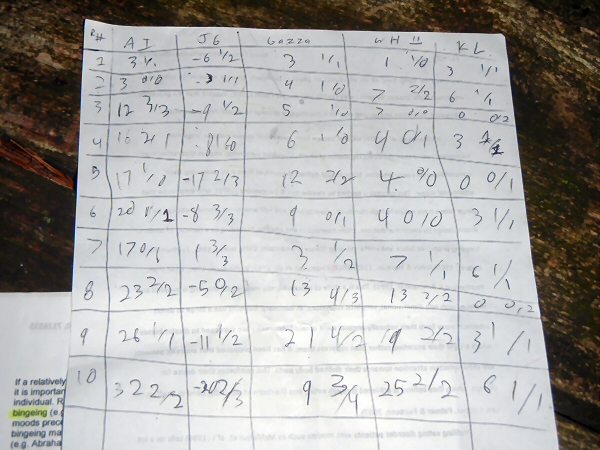 R# AI JG Gazza WH II KL
1 3 -6 1/2 3 1/1 1 1/0 3 1/1
2 3 0/0 4 1/0 7 2/2 6 1/1
3 12 3/3 -9 1/2 5 1/0 7 0/0 0 0/2
4 16 2/1 -8 1/0 6 1/0 4 0/1 3 1/1
5 17 1/0 -17 2/3 12 2/2 4 0/0 0 0/1
6 20 1/1 -8 3/3 9 0/1 4 0/0 3 1/1
7 17 0/1 1 3/3 3 1/2 7 1/1 6 1/1
8 23 2/2 -5 0/2 13 4/3 13 2/2 0 0/2
9 26 1/1 -11 1/2 21 4/2 19 2/2 3 1/1
10 32 2/2 -20 2/3 9 3/4 25 2/2 6 1/1
If a relatively
it is importan
individual. R
bingeing (e.g
moods prece
bingeing ma
(e.g. Abraha